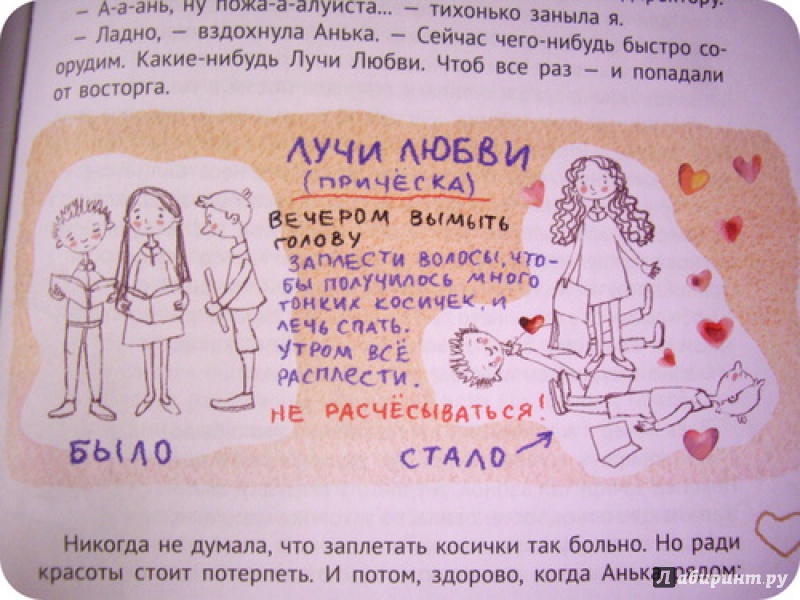 — А-а-ань, ну пожа-а-алуйста... — тихонько заныла я.
— Ладно, — вздохнула Анька. — Сейчас чего-нибудь быстро со-
орудим. Какие-нибудь Лучи Любви. Чтоб все раз — и попадали
от восторга.
ЛУЧИ ЛЮБВИ
(ПРИЧЁСКА)
ВЕЧЕРОМ ВЫМЫТЬ
ГОЛОВУ
ЗАПЛЕСТИ ВОЛОСЫ, ЧТО-
БЫ ПОЛУЧИЛОСЬ МНОГО
ТОНКИХ КОСИЧЕК, И
ЛЕЧЬ СПАТЬ.
УТРОМ ВСЁ
РАСПЛЕСТИ.
НЕ РАСЧЁСЫВАТЬСЯ!
БЫЛО
СТАЛО
Никогда не думала, что заплетать косички так больно. Но ради
красоты стоит потерпеть. И потом, здорово, когда Анька рядом:
Лабиринт.ру